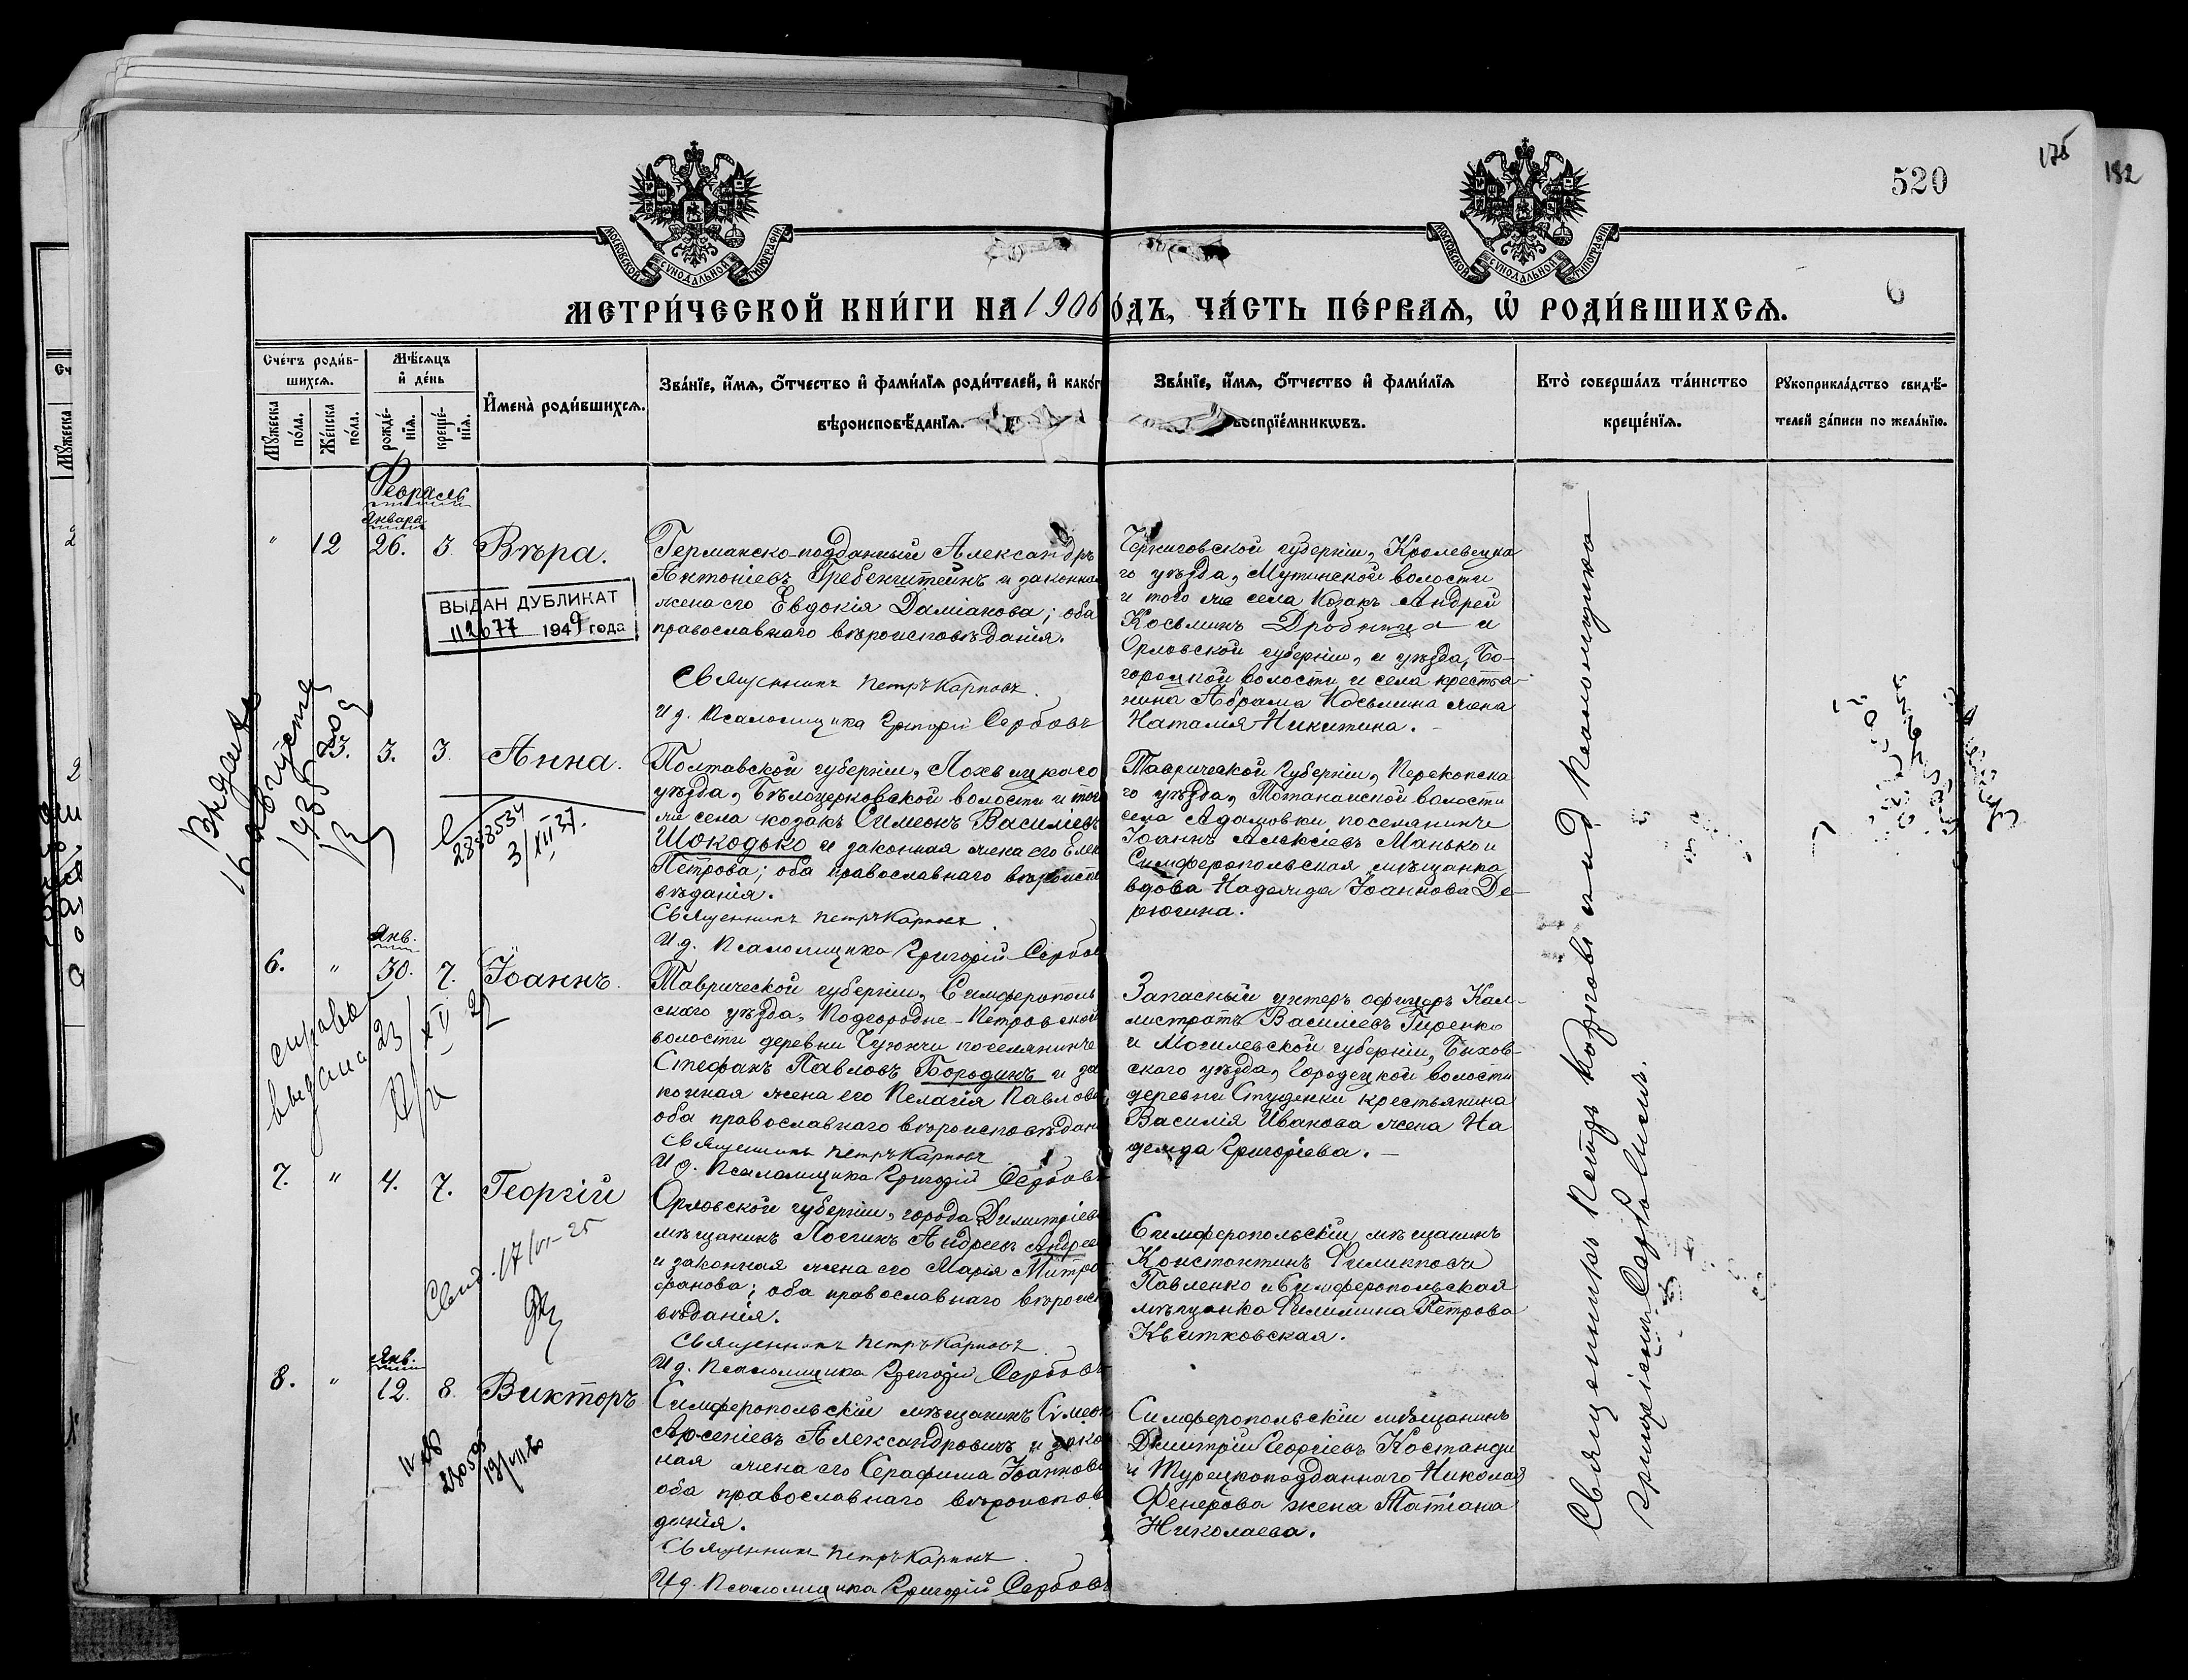 175
182
520
6
МОСКОВСКОЙ СѴНОДАЛЬНОЙ ТИПОГРАФІИ
МОСКОВСКОЙ СѴНОДАЛЬНОЙ ТИПОГРАФІИ
МЕТРИ́ЧЕСКОЙ КНИ́ГИ НА 1906
ОДЪ, ЧА́СТЬ ПЕ́РВАѦ, Ѡ҆ РОДИ́ВШИХСѦ.
Сче́тъ роди́в-
шихсѧ.
Мꙋ́жеска по́ла.
Же́нска по́ла.
Мѣ́сѧцъ
и҆ де́нь
рожде́-
нїѧ.
креще́-
нїѧ.
И҆мена̀ роди́вшихсѧ.
Зва́нїе, и҆́мѧ, ѻ҆́тчество и҆ фами́лїѧ роди́телей, и҆ како́г
вѣроисповѣ́данїѧ.
Зва́нїе, и҆́мѧ, ѻ҆́тчество и҆ фами́лїѧ
воспрїе́мникѡвъ.
Кто̀ соверша́лъ та́инство
креще́нїѧ.
Рꙋкоприкла́дство свидѣ́-
телей за́писи по жела́нїю.
Февраль
Января
" 12 26. 3. Вѣра.
Германско-подданный Александръ
Антоніевъ Гребенштейнъ и законная
жена его Евдокія Даміанова; оба
православнаго вѣроисповѣданія.
Священникъ Петръ Карповъ.
И д. Псаломщика Григорій Сербовъ
ВЫДАН ДУБЛИКАТ
112677 1949 года
Черниговской губерніи, Кролевецка
го уѣзда, Мутинской волости
и того же села козакъ Андрей
Косьминъ Дробница и
Орловской губерніи, и уѣзда, Бо-
городкой волости и села крестья-
нина Абрама Косьмина жена
Наталія Никитина.
13. 3. 3. Анна.
Полтавской губерніи, Лохвицкаго
уѣзда, Бѣлоцерковской волости и того
же села козакъ Симеонъ Василіевъ
Шокодько и законная жена его Елен
Петрова; оба православнаго вѣроиспо
вѣданія.
Священникъ Петръ Карповъ.
И. д. Псаломщика Григорій Сербов
Таврической Губерніи, Перекопска
го уѣзда, Тотанайской волости
села Адамовки поселянинъ
Іоаннъ Алексіевъ Манько и
Симферопольская мѣщанка
вдова Надежда Іоаннова Де-
рюгина.
Выдана
16 августа
1935 года
2888534
3/XII 37.
Янв.
6. " 30. 7. Іоаннъ.
Таврической губерніи, Симферополь
скаго уѣзда, Подгородне-Петровской
волости деревни Чуюнчи поселянинъ
Стефанъ Павловъ Бородинъ и за
конная жена его Пелагія Павлова
оба православнаго вѣроисповѣдан
Священникъ Петръ Карповъ
И д. Псаломщика Григорій Сербовъ
Запасный унтеръ офицеръ Кал-
листратъ Василіевъ Гиренко
и Могилевской губерніи, Быхов-
ского уѣзда, Городецкой волости
деревни Студенки крестьянина
Василія Иванова жена На
дежда Григоріева.
справка
выдана 23/XII
7. " 4. 7. Георгій
Орловской губерніи, города Димитріев
мѣщанинъ Логинъ Андреевъ Андрее
и законная жена его Марія Митро
фанова; оба православнаго вѣроиспо
вѣданія.
Священникъ Петръ Карповъ.
И д. Псаломщика Григорій Сербовъ
Симферопольскій мѣщанинъ
Константинъ Филипповъ
Павленко и Симферопольская
мѣщанка Филицина Петрова
Квитковская.
17/VI-25
Янв.
8. " 12. 8. Викторъ
Симферопольскій мѣщанинъ Симеон
Арсеніевъ Александровичъ и зако
ная жена его Серафима Іоаннова
оба православнаго вѣроисповѣ
данія.
Священникъ Петръ Карповъ.
И д. Псаломщика Григорій Сербовъ
Симферопольскій мѣщанинъ
Димитрій Георгіевъ Костанди
и Турецкоподданнаго Николая
Фенерова жена Татіана
Николаева.
Священникъ Петръ Карповъ и и. д. Псаломщика
Григорій Сербовъ